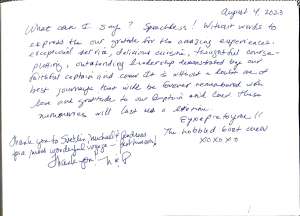 August 4, 2023
What can I say? Speachless! Without words to
express the our gratitude for the amazing experiences.
exceptional service, delicious cuisine, thoughtful menu
planning, outstanding leadership demonstrated by our
faithful captain and crew. It is without a doubt one of
best journeys that will be forever remembered with
love and gratitude to our Captain and crew. These
memories will last us a lifetime.
Efxaristoume!!
The hobbled Goat crew
xoxoxo
Thank you to Stelios, Michali & Andreas
for a most wonderful voyage -
Thank you!